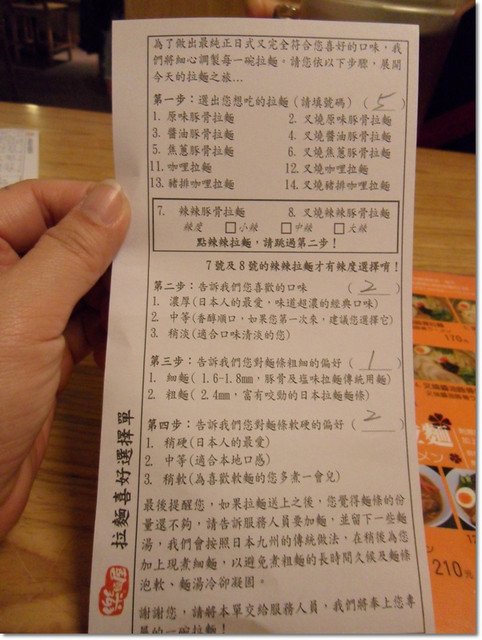 為了做出最純正日式又完全符合您喜好的口味，我
們將細心調製每一碗拉麵。請您依以下步驟，展開
今天的拉麵之旅...
第一步：選出您想吃的拉麵（請填號碼）（ 5 ）
1. 原味豚骨拉麵 2. 叉燒原味豚骨拉麵
3. 醬油豚骨拉麵 4. 叉燒醬油豚骨拉麵
5. 焦蔥豚骨拉麵 6. 叉燒焦蔥豚骨拉麵
11. 咖哩拉麵 12. 叉燒咖哩拉麵
13. 豬排咖哩拉麵 14. 叉燒豬排咖哩拉麵
7. 辣辣豚骨拉麵 8. 叉燒辣辣豚骨拉麵
辣度 □小辣 □中辣 □大辣
點辣辣拉麵，請跳過第二步！
7號及8號的辣辣拉麵才有辣度選擇唷！
第二步：告訴我們您喜歡的口味 （ 2 ）
1. 濃厚(日本人的最愛，味道超濃的經典口味)
2. 中等(香醇順口，如果您第一次來，建議您選擇它)
3. 稍淡(適合口味清淡的您)
第三步：告訴我們您對麵條粗細的偏好（ 1 ）
1. 細麵( 1.6-1.8mm，豚骨及塩味拉麵傳統用麵)
2. 粗麵( 2.4mm，富有咬勁的日本拉麵麵條)
第四步：告訴我們您對麵條軟硬的偏好（ 2 ）
1. 稍硬(日本人的最愛)
2. 中等(適合本地口感)
3. 稍軟(為喜歡軟麵的您多煮一會兒)
最後提醒您，如果拉麵送上之後，您覺得麵條的份
量還不夠，請告訴服務人員要加麵，並留下一些麵
湯，我們會按照日本九州的傳統做法，在稍後為您
加上現煮細麵，以避免煮粗麵的長時間久候及麵條
泡軟、麵湯冷卻凝固。
謝謝您，請將本單交給服務人員，我們將奉上您專
屬的一碗拉麵！
拉麵喜好選擇單
170元
メン
210元